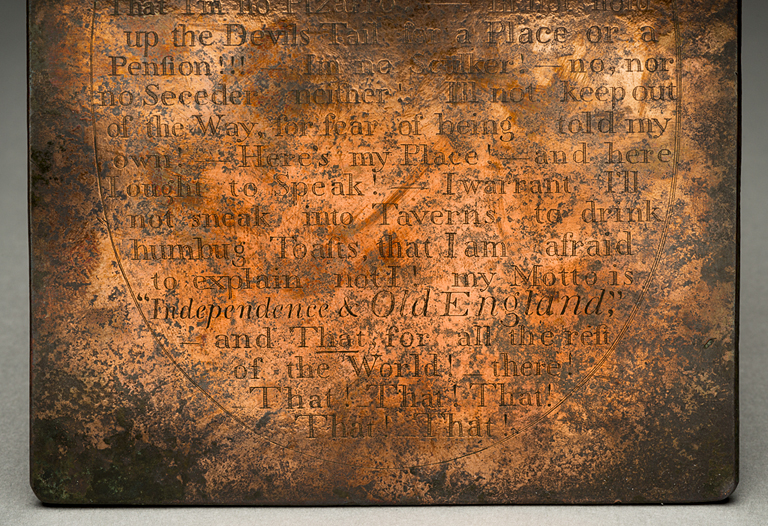 That I'm no Pizarro! — I'll not hold
up the Devils Tail for a Place or a
Penſion!!! — I'm no Sculker! — no, nor
no Seceder neither! I'll not keep out
of the Way, for fear of being told my
own! — Here's my Place! — and here
I ought to Speak! — I warrant, I'll
not sneak into Taverns to drink
humbug Toaſts, that I am afraid
to explain not I! my Motto is
"Independence & Old England,"
— and That for all the reſt
of the World! — there! —
That! That! That!
That! That!